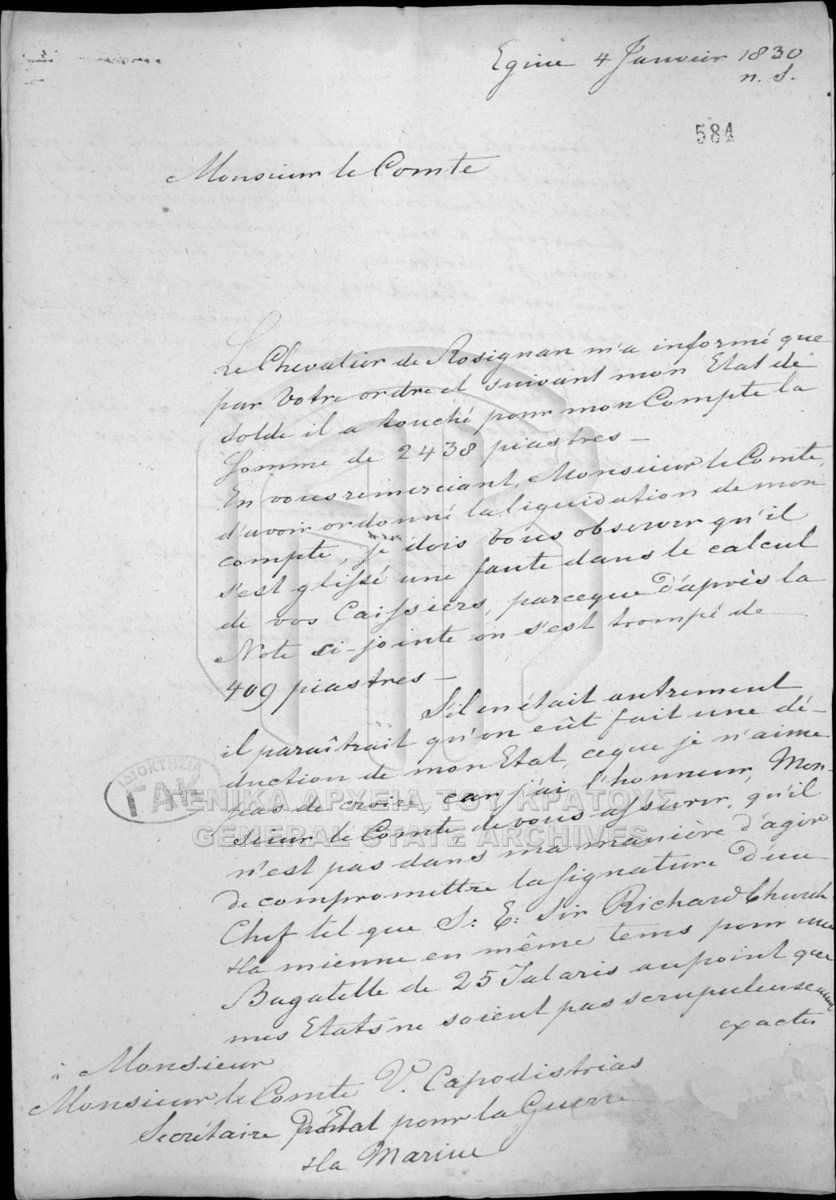 Egine 4 Janvier 1830
n. S.
584
Monsieur le Comte
Le Chevalier de Rosignan m'a informé que
par Votre ordre et suivant mon Etat de
Solde il a touché pour mon Compte la
Somme de 2438 piastres —
En vous remerciant, Monsieur le Comte,
d'avoir ordonné la liquidation de mon
compte, je dois vous observer qu'il
s'est glissé une faute dans le calcul
de vos Caissiers, parceque d'après la
Note si-jointe on s'est trompé de
409 piastres —
S'il en était autrement
il paraîtrait qu'on eût fait une dé-
duction de mon Etat, ceque je n'aime
pas de croire, car j'ai l'honneur, Mon-
sieur le Comte, de vous assurer, qu'il
n'est pas dans ma manière d'agir
de compromettre la signature d'un
Chef tel que S. E. Sir Richard Church
& la mienne en même tems pour une
Bagatelle de 25 Talaris au point que
mes Etats ne soient pas scrupuleusement
exactes
à Monsieur
Monsieur le Comte V. Capodistrias
Secrétaire d'Etat pour la Guerre
& la Marine
ΙΔΙΟΚΤΗΣΙΑ
ΓΑΚ
ΓΕΝΙΚΑ ΑΡΧΕΙΑ ΤΟΥ ΚΡΑΤΟΥΣ
GENERAL STATE ARCHIVES